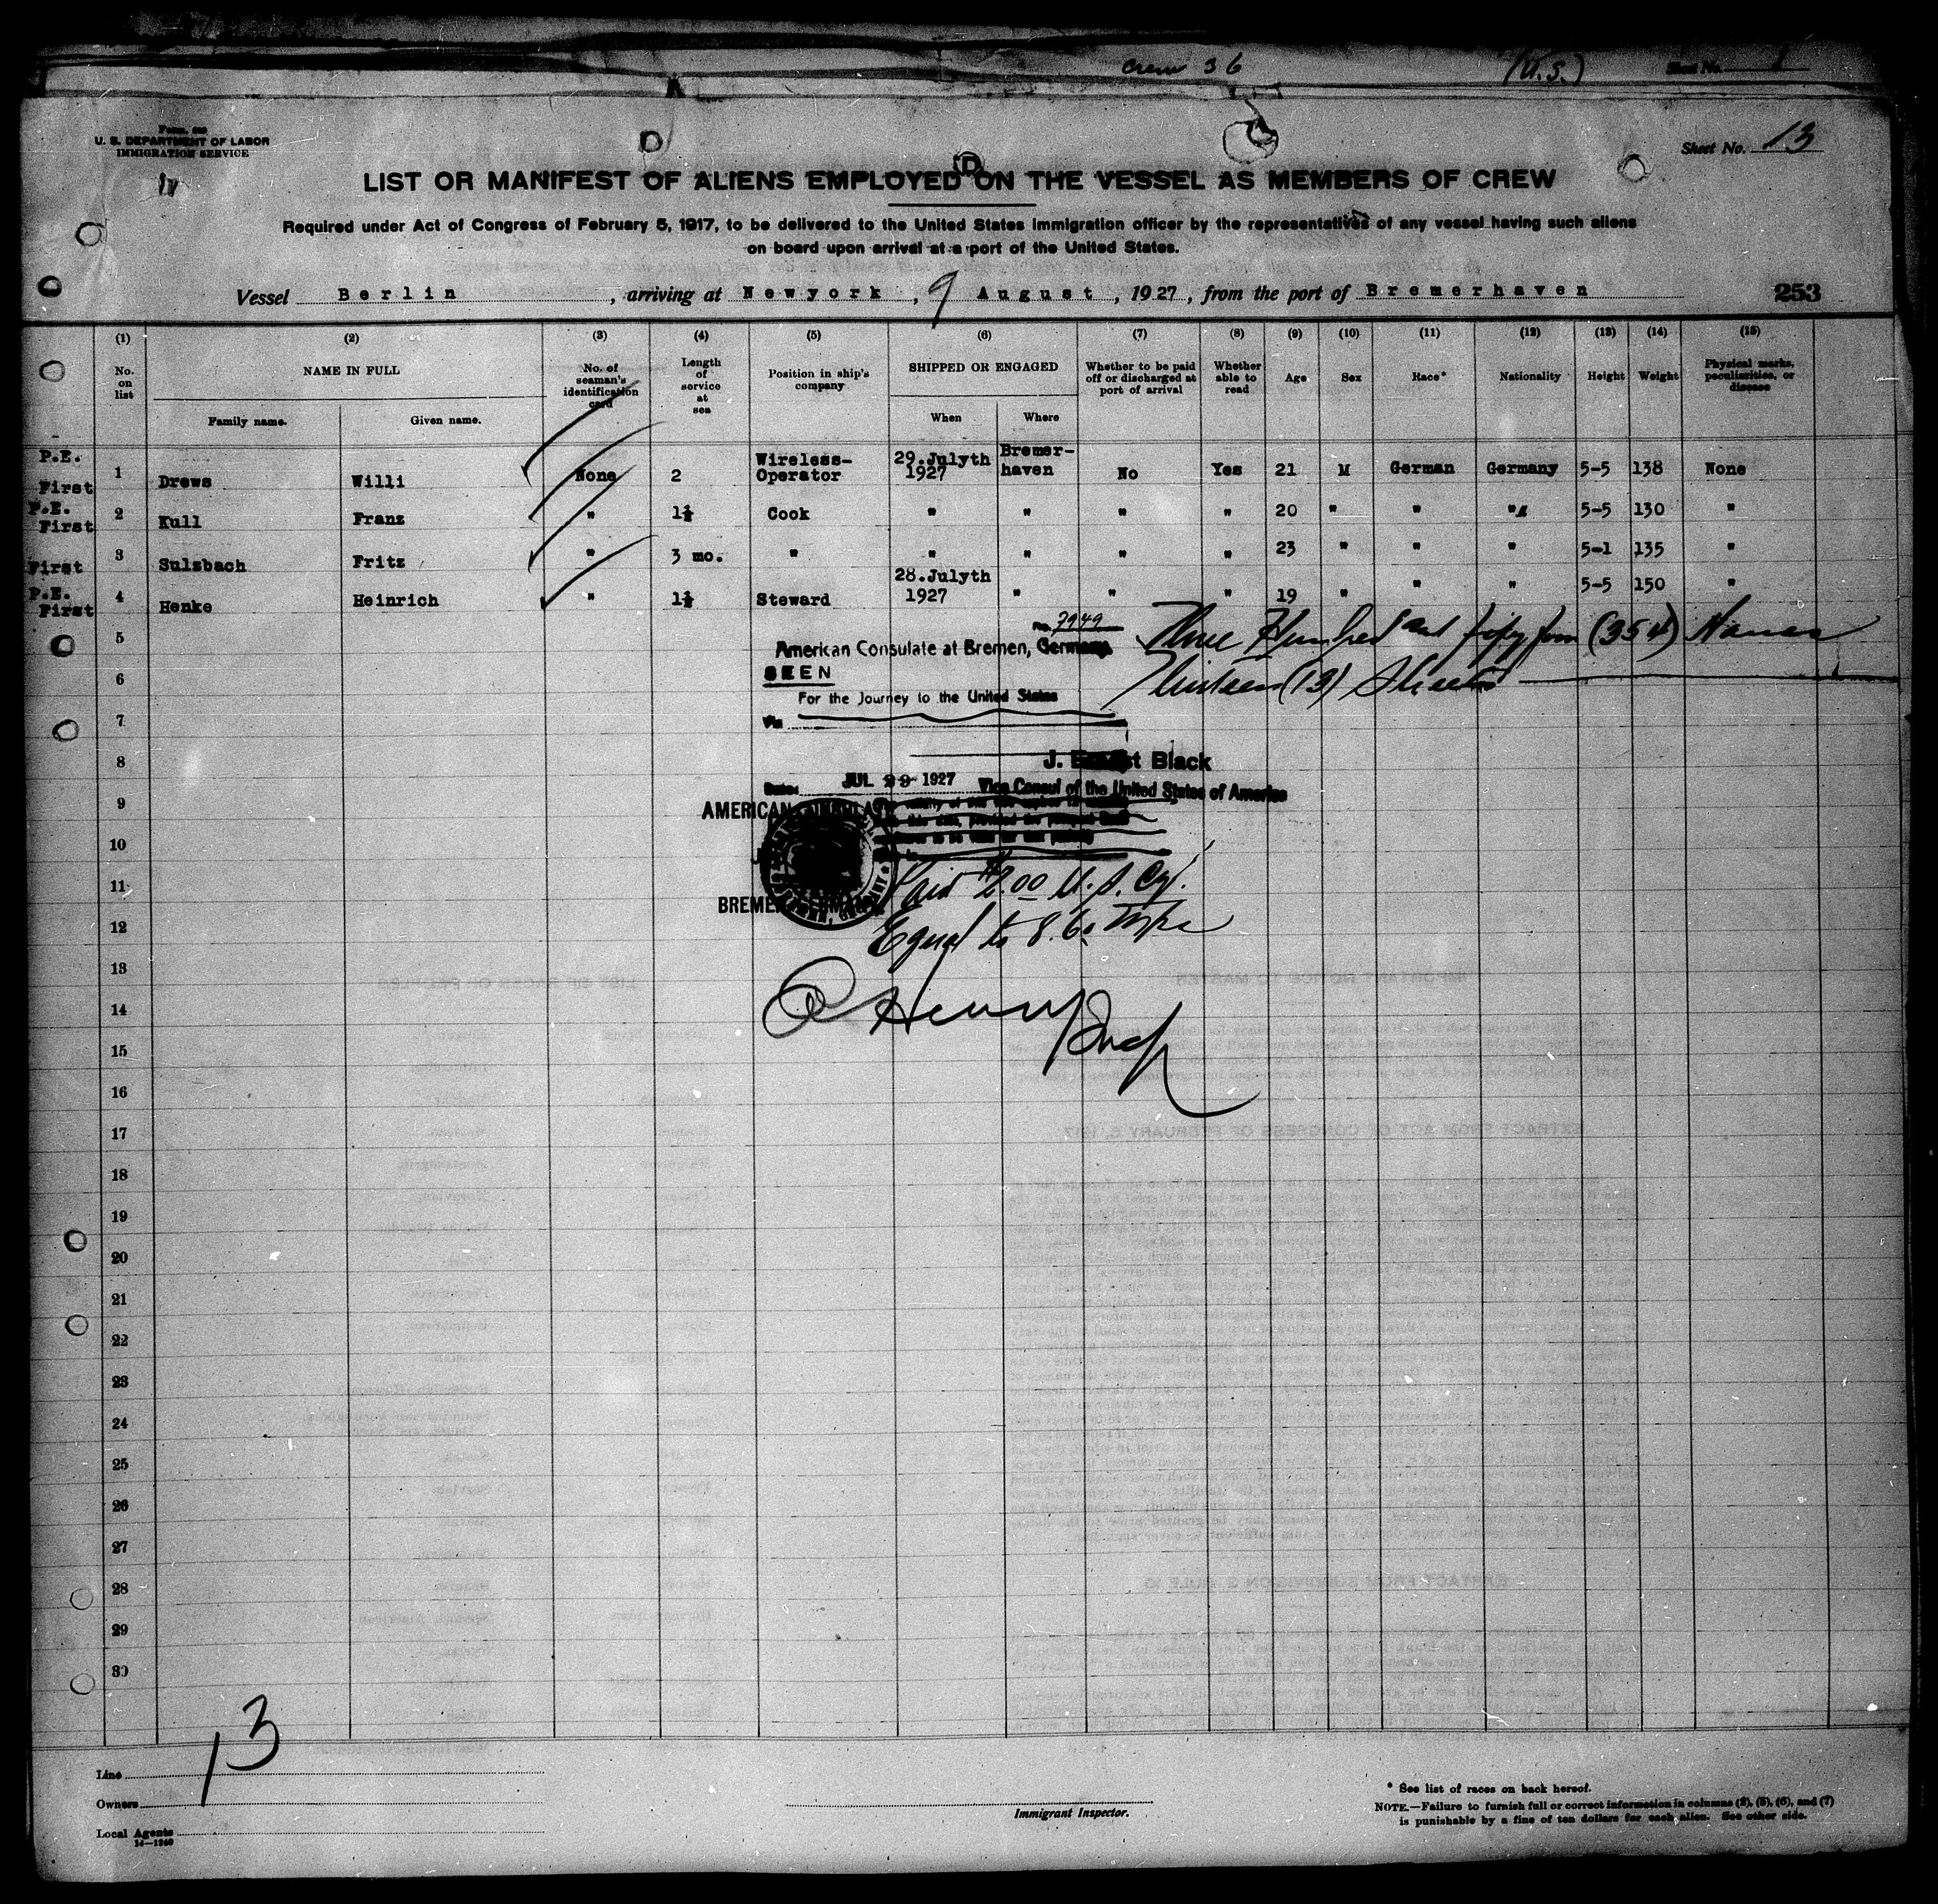 Crew 36 (U.S.) Sheet No. 1
U. S. DEPARTMENT OF LABOR
IMMIGRATION SERVICE
Sheet No. 13
D
LIST OR MANIFEST OF ALIENS EMPLOYED ON THE VESSEL AS MEMBERS OF CREW
Required under Act of Congress of February 5, 1917, to be delivered to the United States immigration officer by the representatives of any vessel having such aliens
on board upon arrival at a port of the United States.
Vessel Berlin, arriving at Newyork, 9 August, 1927, from the port of Bremerhaven 253
(1) (2) (3) (4) (5) (6) (7) (8) (9) (10) (11) (12) (13) (14) (15)
No. on list NAME IN FULL Family name. Given name. No. of seaman's identification card Length of service at sea Position in ship's company SHIPPED OR ENGAGED When Where Whether to be paid off or discharged at port of arrival Whether able to read Age Sex Race* Nationality Height Weight Physical marks, peculiarities, or disease
P.E. First 1 Drews Willi None 2 Wireless-Operator 29.Julyth 1927 Bremer-haven No Yes 21 M German Germany 5-5 138 None
P.E. First 2 Kull Franz " 1½ Cook " " " " 20 " " " 5-5 130 "
First 3 Sulzbach Fritz " 3 mo. " " " " " 23 " " " 5-1 135 "
P.E. First 4 Henke Heinrich " 1½ Steward 28.Julyth 1927 " " " 19 " " " 5-5 150 "
5
No. 7949
American Consulate at Bremen, Germany.
Three Hundred and fifty four (354) Names
6
SEEN
Thirteen (13) Sheets
For the Journey to the United States
7
Via
8
J. Ernest Black
Date: JUL 29 1927 Vice Consul of the United States of America
9
AMERICAN CONSULATE
10
11
Paid $2.00 U.S. Cy.
BREMEN, GERMANY
12
Equal to 8.60 Mks
13
14
15
16
17
18
19
20
21
22
23
24
25
26
27
28
29
30
13
Line
Owners
Local Agents
14—1240
Immigrant Inspector.
* See list of races on back hereof.
NOTE.—Failure to furnish full or correct information in columns (2), (5), (6), and (7)
is punishable by a fine of ten dollars for each alien. See other side.